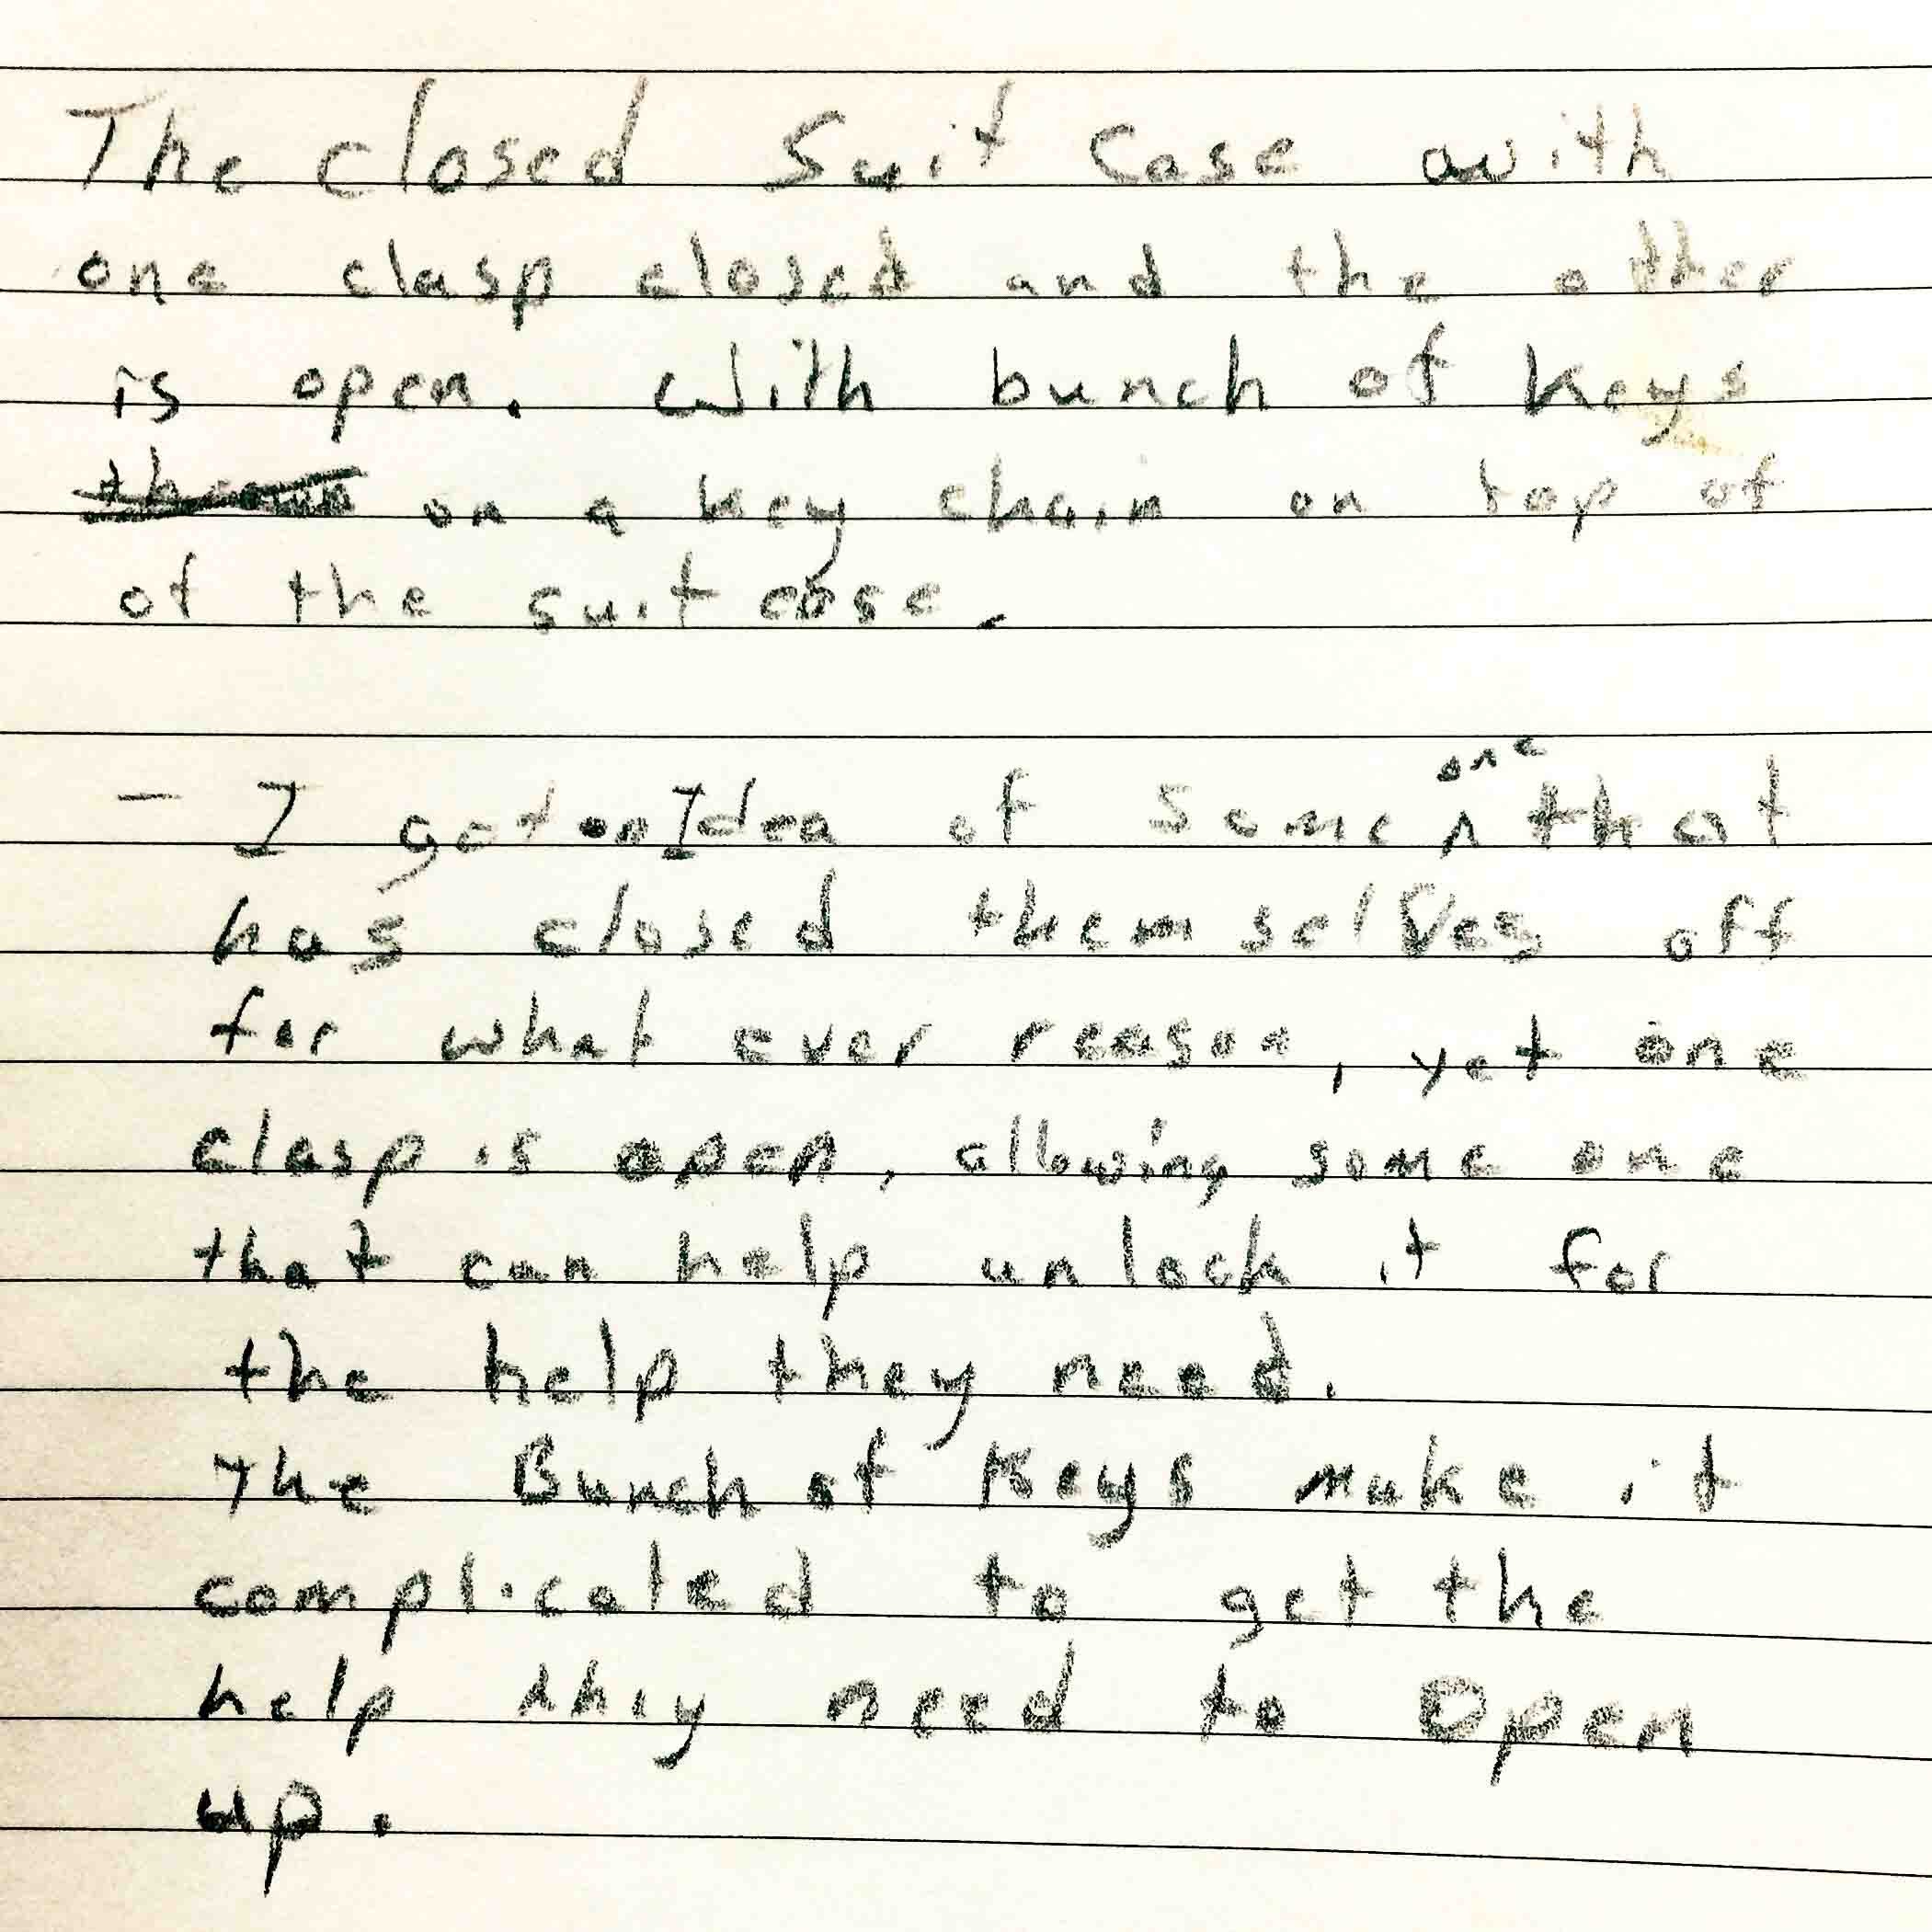 The closed Suit Case with
one clasp closed and the other
is open. With bunch of keys
on a key chain on top of
of the suit case.
- I got an Idea of Some one that
has closed themselves off
for what ever reason, yet one
clasp is open, allowing some one
that can help unlock it for
the help they need.
The Bunch of Keys make it
complicated to get the
help they need to Open
up.